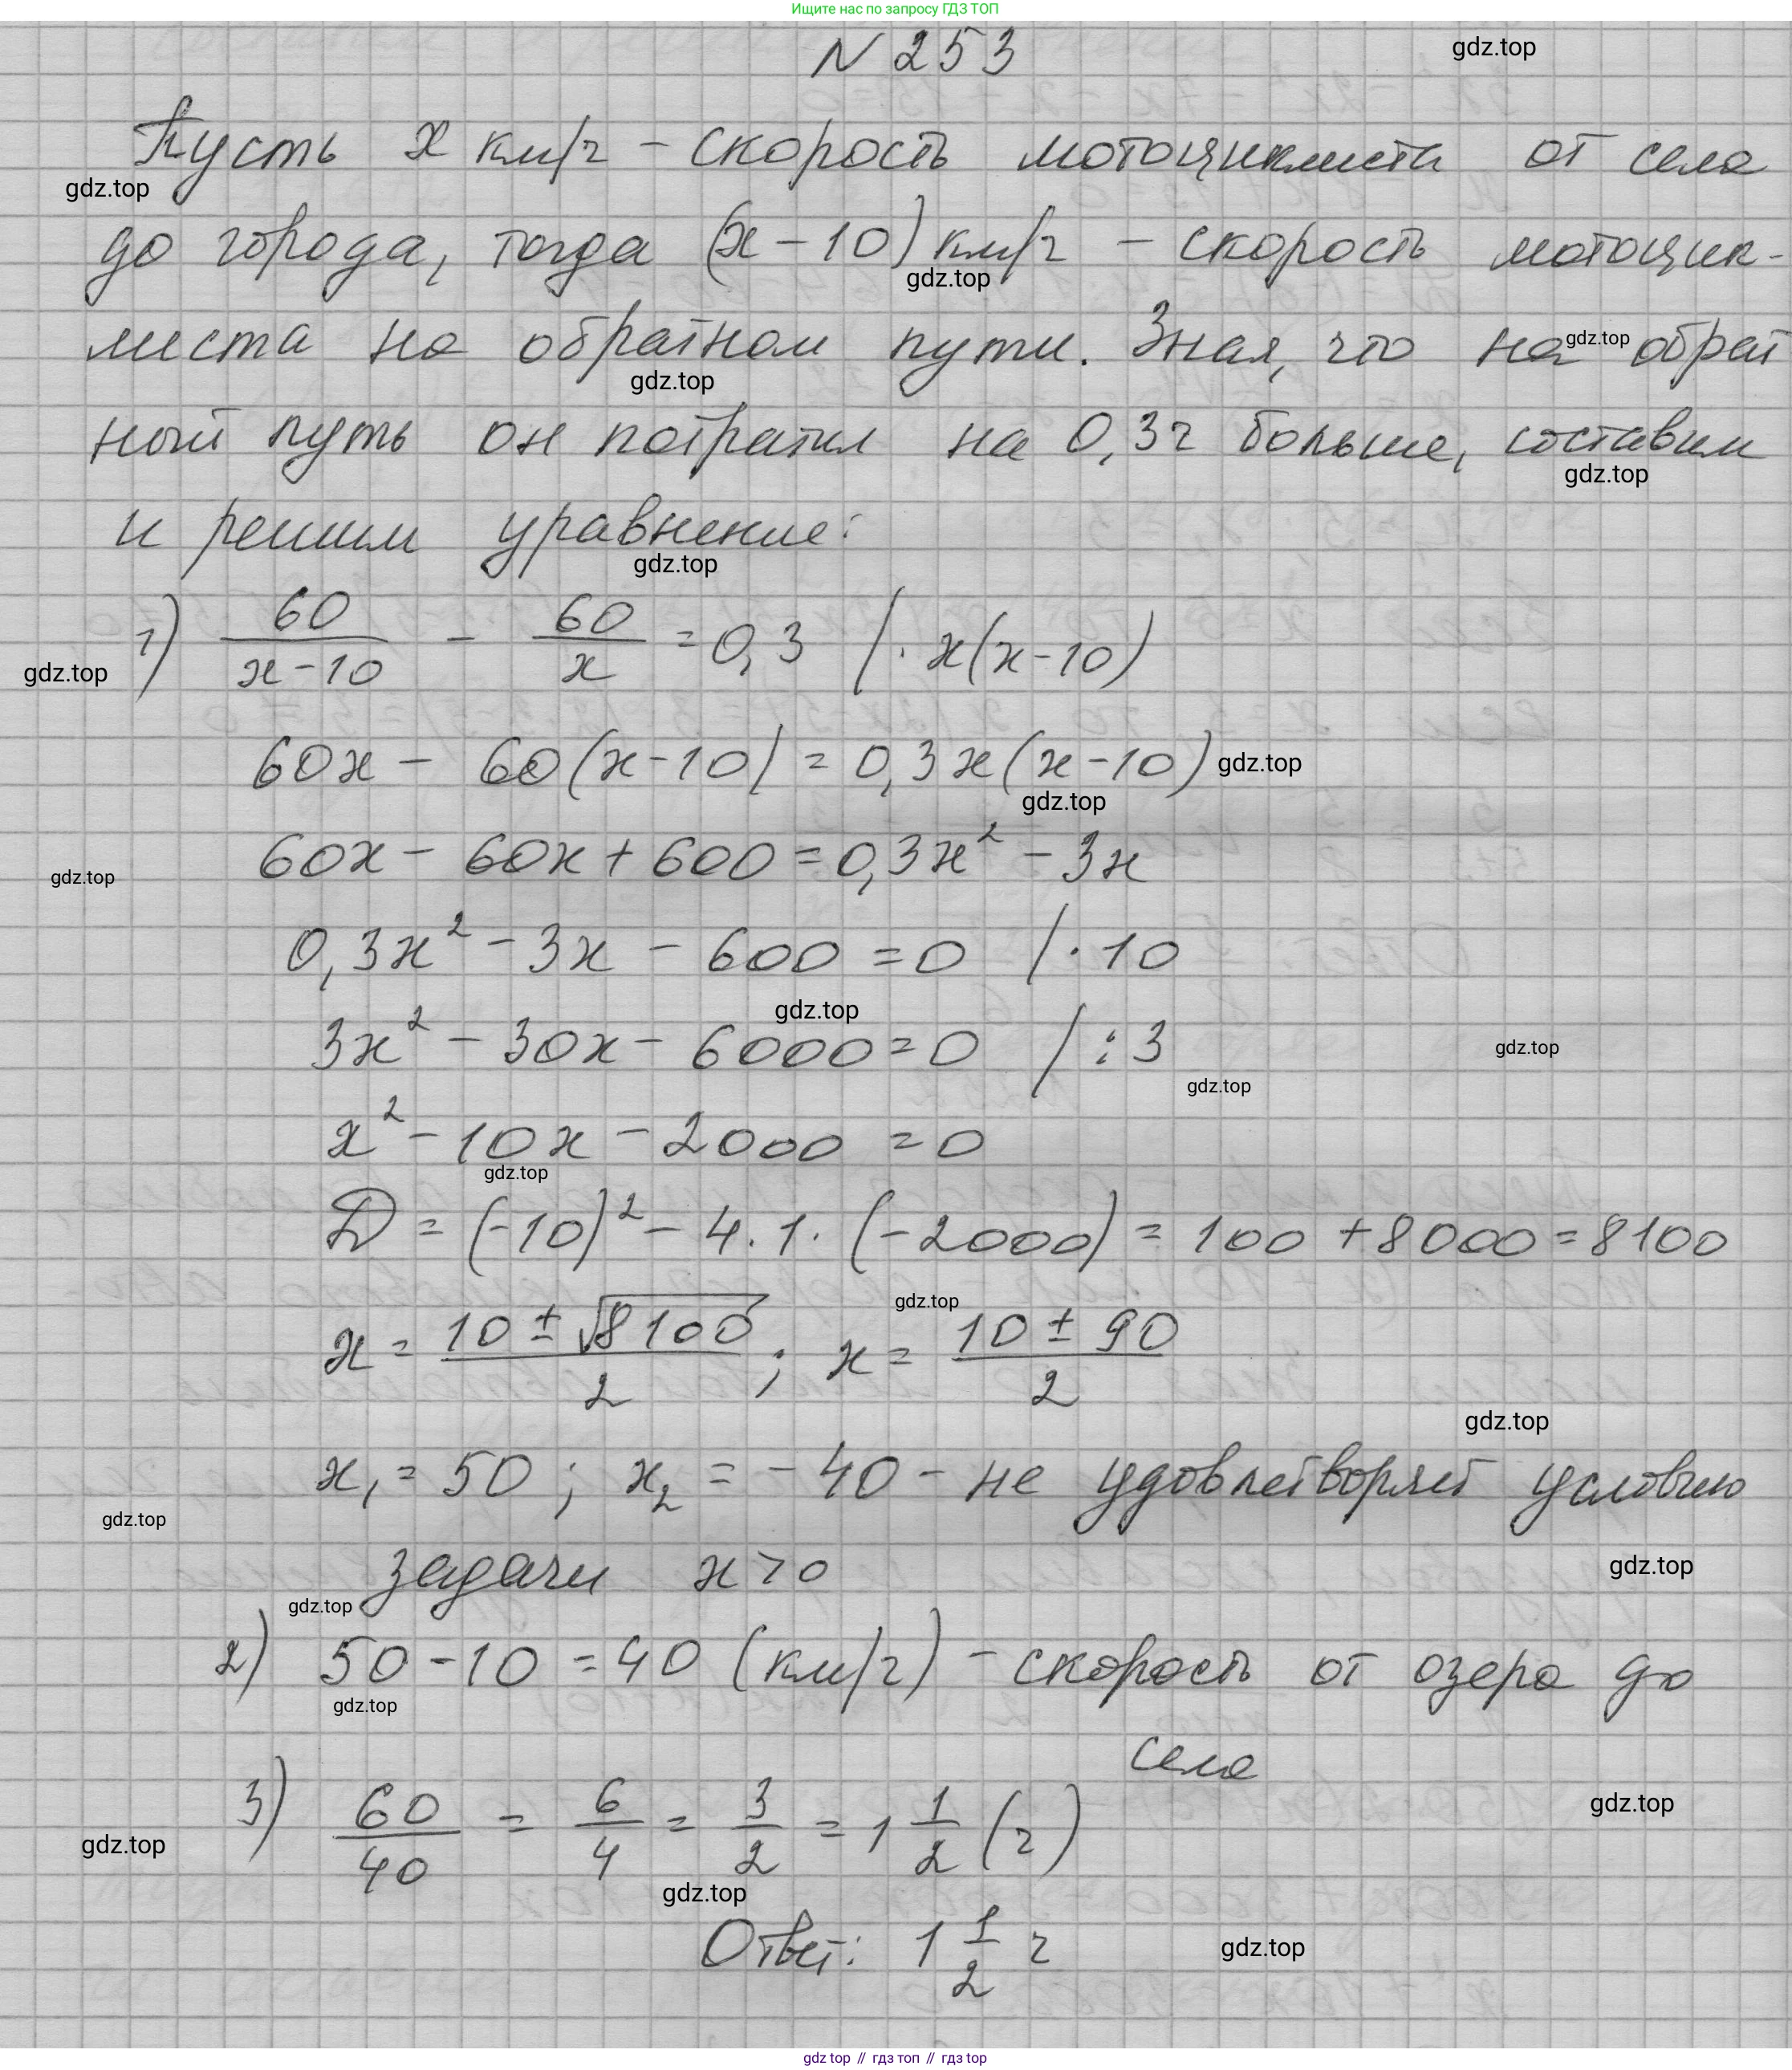 Ищите нас по запросу ГДЗ ТОП
N 253
gdz.top
Пусть x км/ч – скорость мотоциклиста от села
gdz.top
до города, тогда (x – 10) км/ч – скорость мотоцик-
gdz.top
листа на обратном пути. Зная, что на обрат
gdz.top
gdz.top
ный путь он потратил на 0,3ч больше, составим
gdz.top
и решим уравнение:
gdz.top
1) 60/(x-10) - 60/x = 0,3 / · x(x-10)
gdz.top
60x - 60(x-10) = 0,3x(x-10)
gdz.top
gdz.top
60x - 60x + 600 = 0,3x² - 3x
gdz.top
0,3x² - 3x - 600 = 0 / · 10
gdz.top
3x² - 30x - 6000 = 0 / : 3
gdz.top
gdz.top
x² - 10x - 2000 = 0
gdz.top
D = (-10)² - 4 · 1 · (-2000) = 100 + 8000 = 8100
gdz.top
x = (10 ± √8100)/2 ; x = (10 ± 90)/2
gdz.top
x₁ = 50 ; x₂ = -40 - не удовлетворяет условию
gdz.top
задачи x > 0
gdz.top
gdz.top
2) 50 - 10 = 40 (км/ч) - скорость от озера до
gdz.top
села
3) 60/40 = 6/4 = 3/2 = 1 1/2 (ч)
gdz.top
gdz.top
gdz.top
Ответ: 1 1/2 ч
gdz.top
gdz top // гдз топ // gdz top